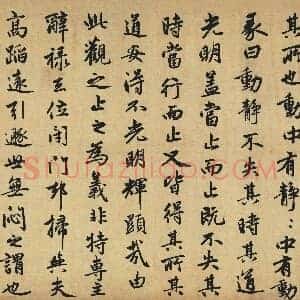 其所也動中有静:中有動
彖曰動静不失其時其道
光明蓋當止而止既不失其
時當行而止又皆得其所其
道安得不光明輝顯哉由
此觀之止之為義非特專主
辭禄去位閉門却掃與夫
高蹈遠引遯世無悶之謂也